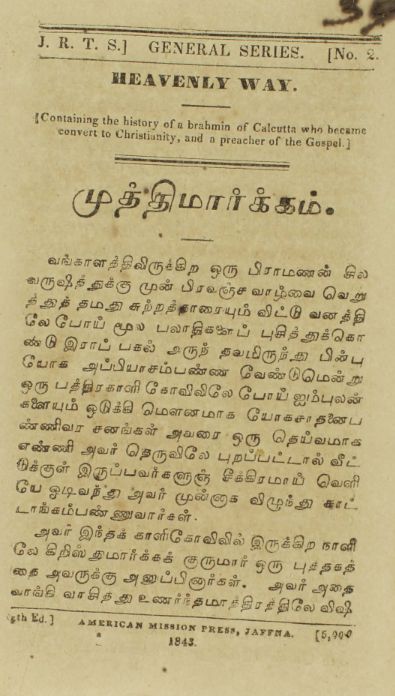 J. R. T. S.] GENERAL SERIES. [No. 2.
HEAVENLY WAY.
[Containing the history of a brahmin of Calcutta who became
convert to Christianity, and a preacher of the Gospel.]
முத்திமார்க்கம்.
வங்காளத்திலிருக்கிற ஒரு பிராமணன் சில
வருஷித்துக்கு முன் பிரவஞ்ச வாழ்வை வெறு
த்துத் தமது சுற்றத்தாரையும் விட்டு வனத்தி
லேபோய் மூல பலாதிகளைப் புசித்துக்கொ
ண்டு இராப் பகல் அருந் தவமிருந்து பின்பு
யோக அப்பியாசம்பண்ண வேண்டுமென்று
ஒரு பத்திரகாளி கோவிலிலே போய் ஐம்புலன்
களையும் ஒடுக்கி மௌனமாக யோகசாதனைப
ண்ணிவர சனங்கள் அவரை ஒரு தெய்வமாக
எண்ணி அவர் தெருவிலே புறப்பட்டால் வீட்
டுக்குள் இருப்பவர்களுஞ் சீக்கிரமாய் வெளி
யே ஓடிவந்து அவர் முன்னாக விழுந்து சாட்
டாங்கம்பண்ணுவார்கள்.
அவர் இந்தக் காளிகோவிலில் இருக்கிற நாளி
லே கிறிஸ்துமார்க்கக் குருமார் ஒரு புத்தகத்
தை அவருக்கு அனுப்பினார்கள். அவர் அதை
வாங்கி வாசித்து உணர்ந்தமாத்திரத்திலே விஷி
5th Ed.] AMERICAN MISSION PRESS, JAFFNA. [5,000
1843.